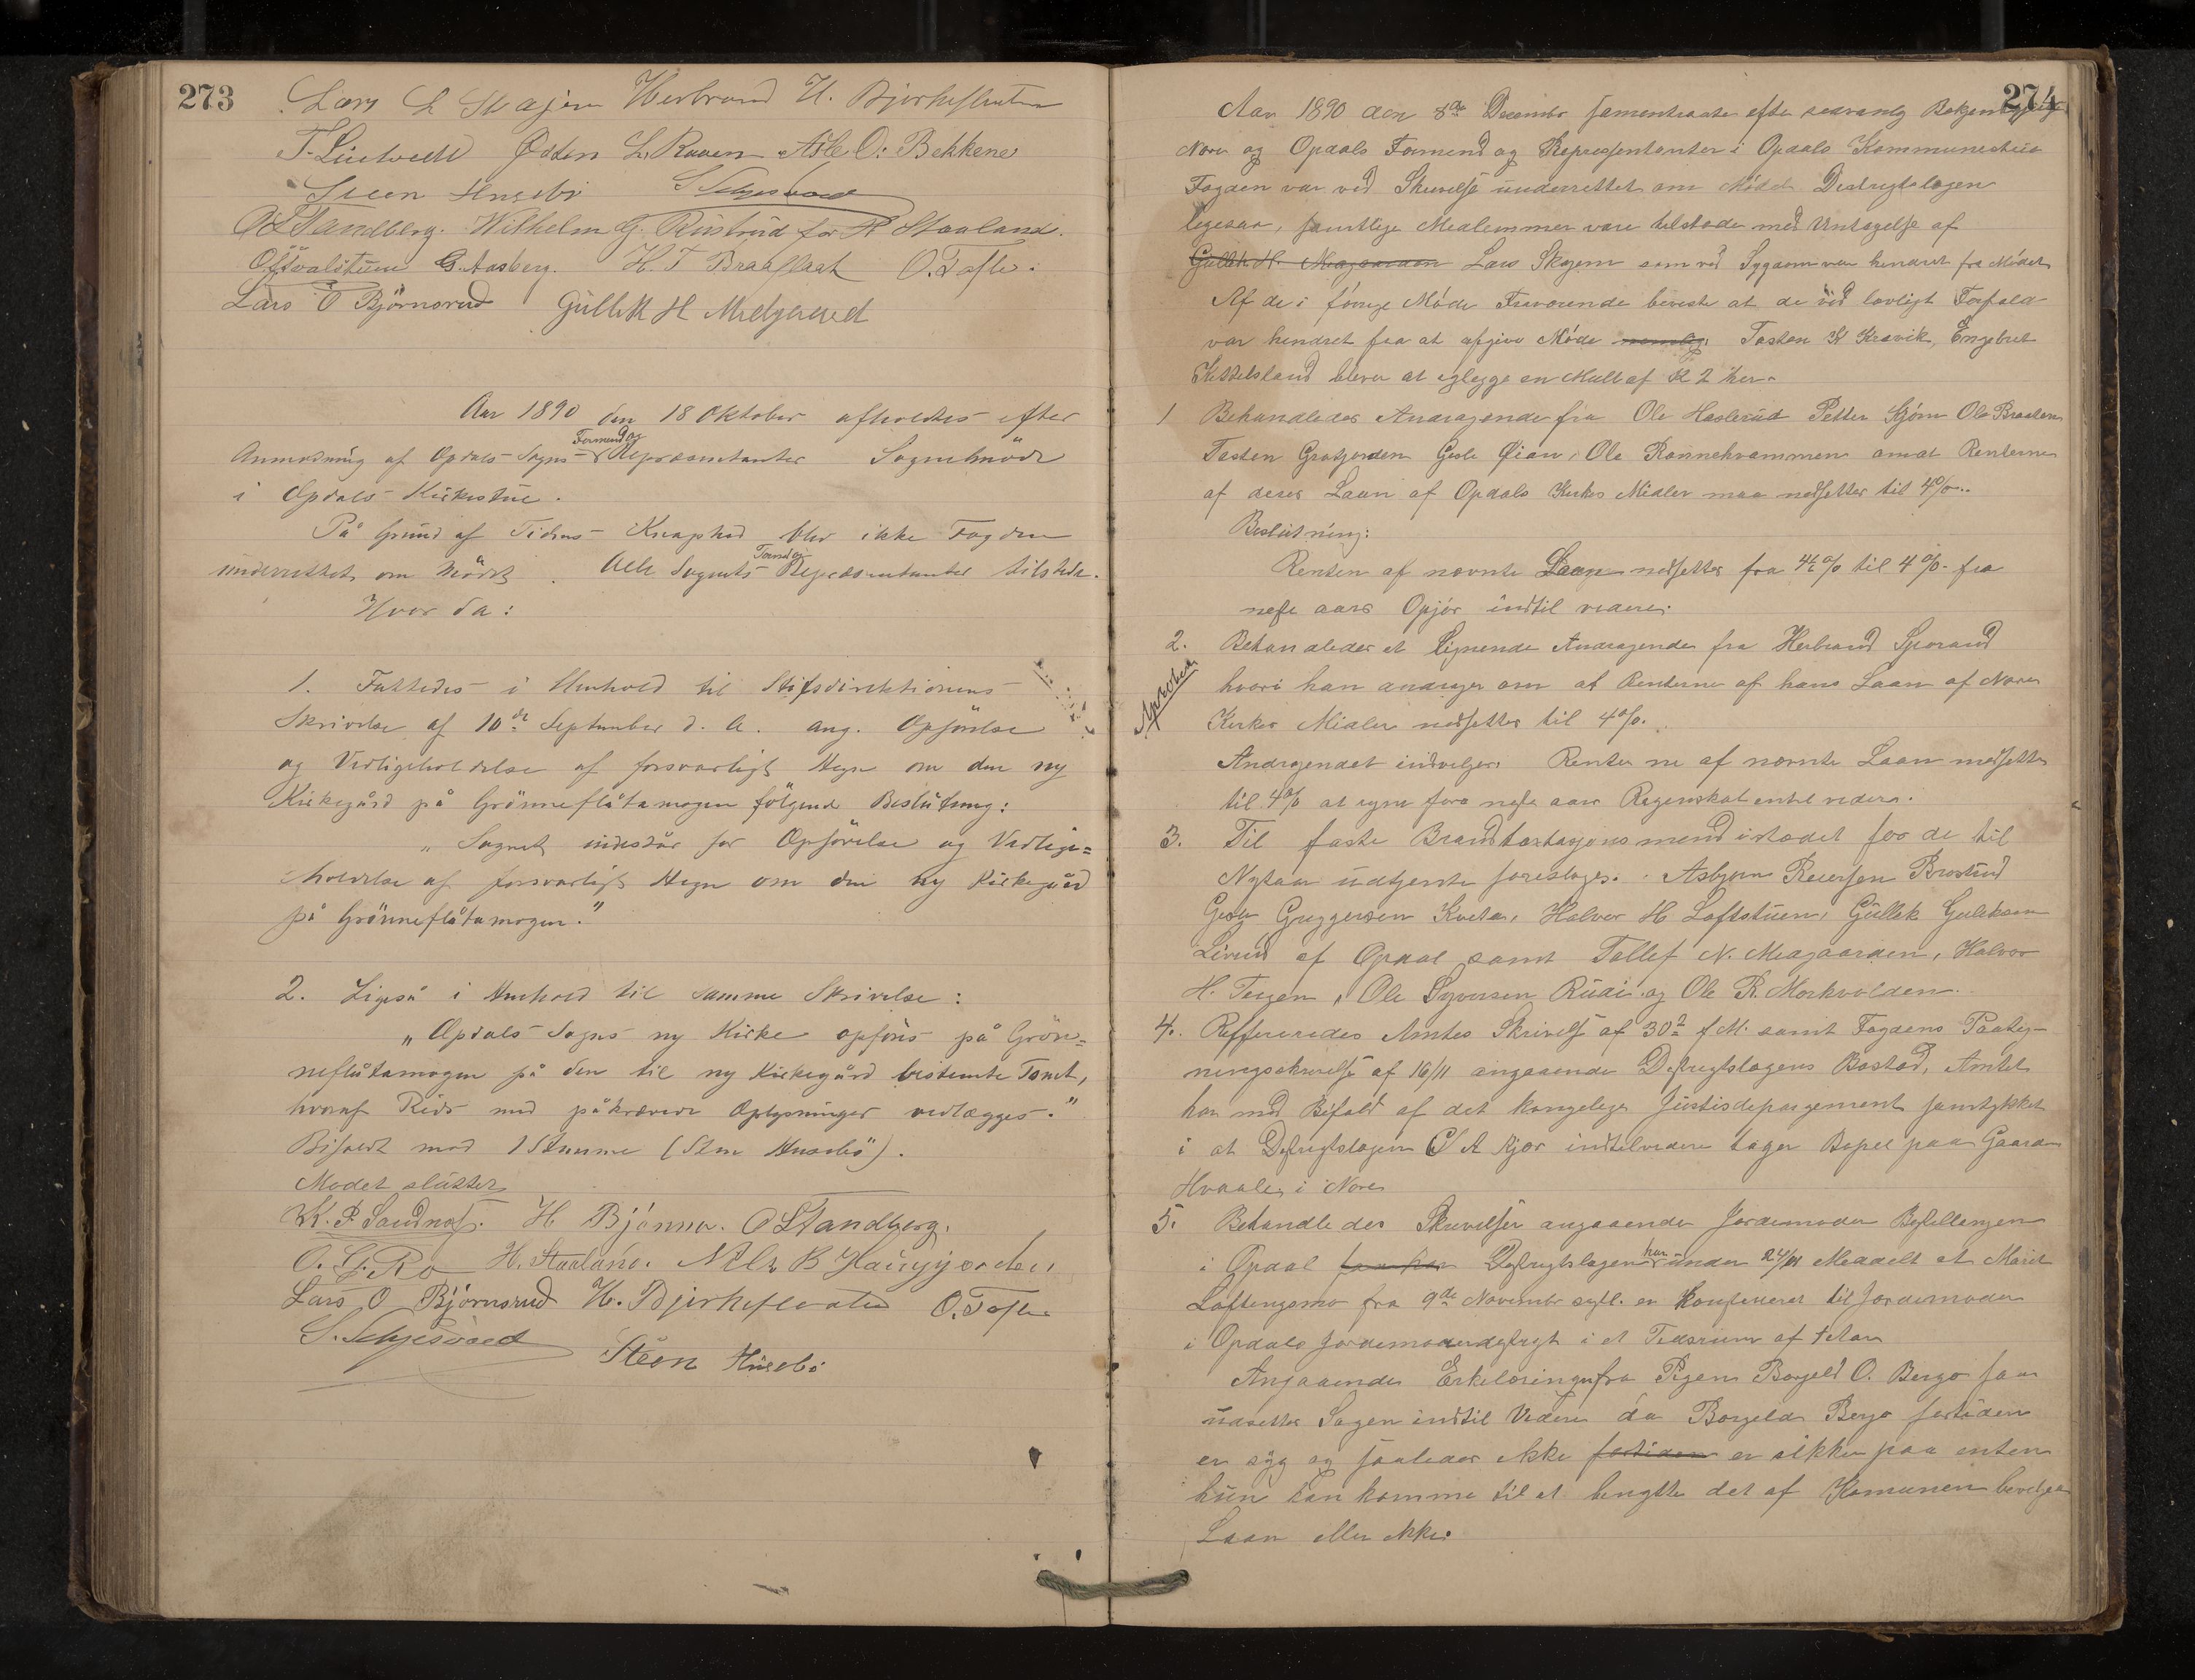 273
Lars L Skajem Herbrand H. Bjørkeflaaten
T. Liverud Østen L. Raaen Asle O: Bekkene
Steen Huseby S Schjesvold
O L Sandberg. Wilhelm G. Rustrud for H Staaland.
G. Aasberg. H. T Braaflaat O. Tofte.
Lars O Björnsrud Gullik H Medgaard
Aar 1890 den 18 Oktober afholdtes efter
Formend og
Anmodning af Opdals Sogns Repræsentanter Sognemöde
i Opdals Kirkestue.
På Grund af Tidens Knaphed blev ikke Fogden
Formd og
underrettet om Mödet. Alle Sognets Repræsentanter tilstede.
Hvor da:
1. Fattedes i Henhold til Stiftsdirektionens
Skrivelse af 10de September d. A. ang. Opförelse
og Vedligeholdelse af forsvarligt Hegn om den ny
Kirkegård på Grönneflåtamogen fölgende Beslutning:
"Sognet indestår for Opförelse og Vedlige=
holdelse af forsvarligt Hegn om den ny Kirkegård
på Grönneflåtamogen."
2. Ligeså i Henhold til samme Skrivelse:
"Opdals Sogns ny Kirke opföres på Grön=
neflåtamogen på den til ny Kirkegård bestemte Tomt,
hvoraf Rids med påkrævede Oplysninger vedlægges."
Bifaldt mod 1 Stemme (Sten Husebö).
Mødet sluttet
K. P. Sandnes. H Bjönnes. O L Sandberg.
O. G. Ro H. Staaland. Nils B Haugjorden
Lars O Björnsrud H. Bjørkeflaaten O. Tofte
S. Schjesvold Steen Huseby
274
Aar 1890 den 8de Decembr sammentraate efter sedvanlig Bekjentgjørelse
Nore og Opdals Formend og Representanter i Opdals Kommunestue
Fogden var ved Skrivelse underrettet om Mødet Destrigtslægen
legesaa, samtlige Medlemmer vare tilstede med Untagelse af
Gullik H. Medgaarden Lars Skajem som ved Sygdom var hendret fra Mødet
Af de i forrige Møde Fraverende beviste at de ved lovligt Forfald
var hendret fra at afgive Møde nemlig Tosten K Kravik, Engebret
Kittelsland blever at erlegge en Mult af K 2 hver.
1 Behandledes Andragende fra Ole Haslerud Petter Gjøm Ole Braaten
Tosten Grotjorden Gisle Øian, Ole Rannehvammen om at Renterne
af deres Laan af Opdals Kirkes Midler maa nedsettes til 4%.
Beslutning:
Renten af nevnte Laan nedsettes fra 4½% til 4%. fra
neste aars Opjør indtil videre.
2. Behandledes et lignende Andragende fra Herbrand Sporand
Aproberet
hvori han andrager om at Renterne af hans Laan af Nore
Kirkes Midler nedsettes til 4%.
Andragendet indvelges Renterne af nevnte Laan nedsettes
til 4% at regne fra neste aars Regenskab entil videre.
3. Til faste Brandtaxtasjonsmend istedet for de til
Nytaar udtjente foreslages. Asbjørn Reiersen Brostrud
Gisle Guggersen Kvetn, Halvor H Loftstuen, Gullek Guleksen
Liverud af Opdal samt Tollef N. Medgaarden, Halvor
H. Teigen, Ole Syversen Rudi og Ole R. Morkvolden.
4. Reffereredes Amtes Skrivelse af 30de f M. samt Fogdens Paateg-
ningsskrivelse af 16/11 angaaende Destregtslægens Bosted, Amtet
har med Bifald af det kongelige Justisdepargement samtykket
i at Destregtslægen C A Kjær indtilvidere tager Bopel paa Gaarden
Hvaale i Nore
5. Behandledes Skrivelser angaaende Jordemoder Bestillingen
i Opdal Destregtslægen har under 24/11 Meddelt at Marit
Loftengsmo fra 9de Novembr sistl. er Konstitueret til Jordemoder
i Opdals Jordemoderdestrigt i et Tidsrum af 1et Aar
Angaaende Erkleringen fra Pigen Borgeld O. Bergo saa
udsettes Sagen indtil Videre da Borgeld Bergo fortiden
er syg og saaledes ikke fortiden er sikker paa enten
hun kan komme til at benytte det af Komunen bevelgede
Laan eller ikke.